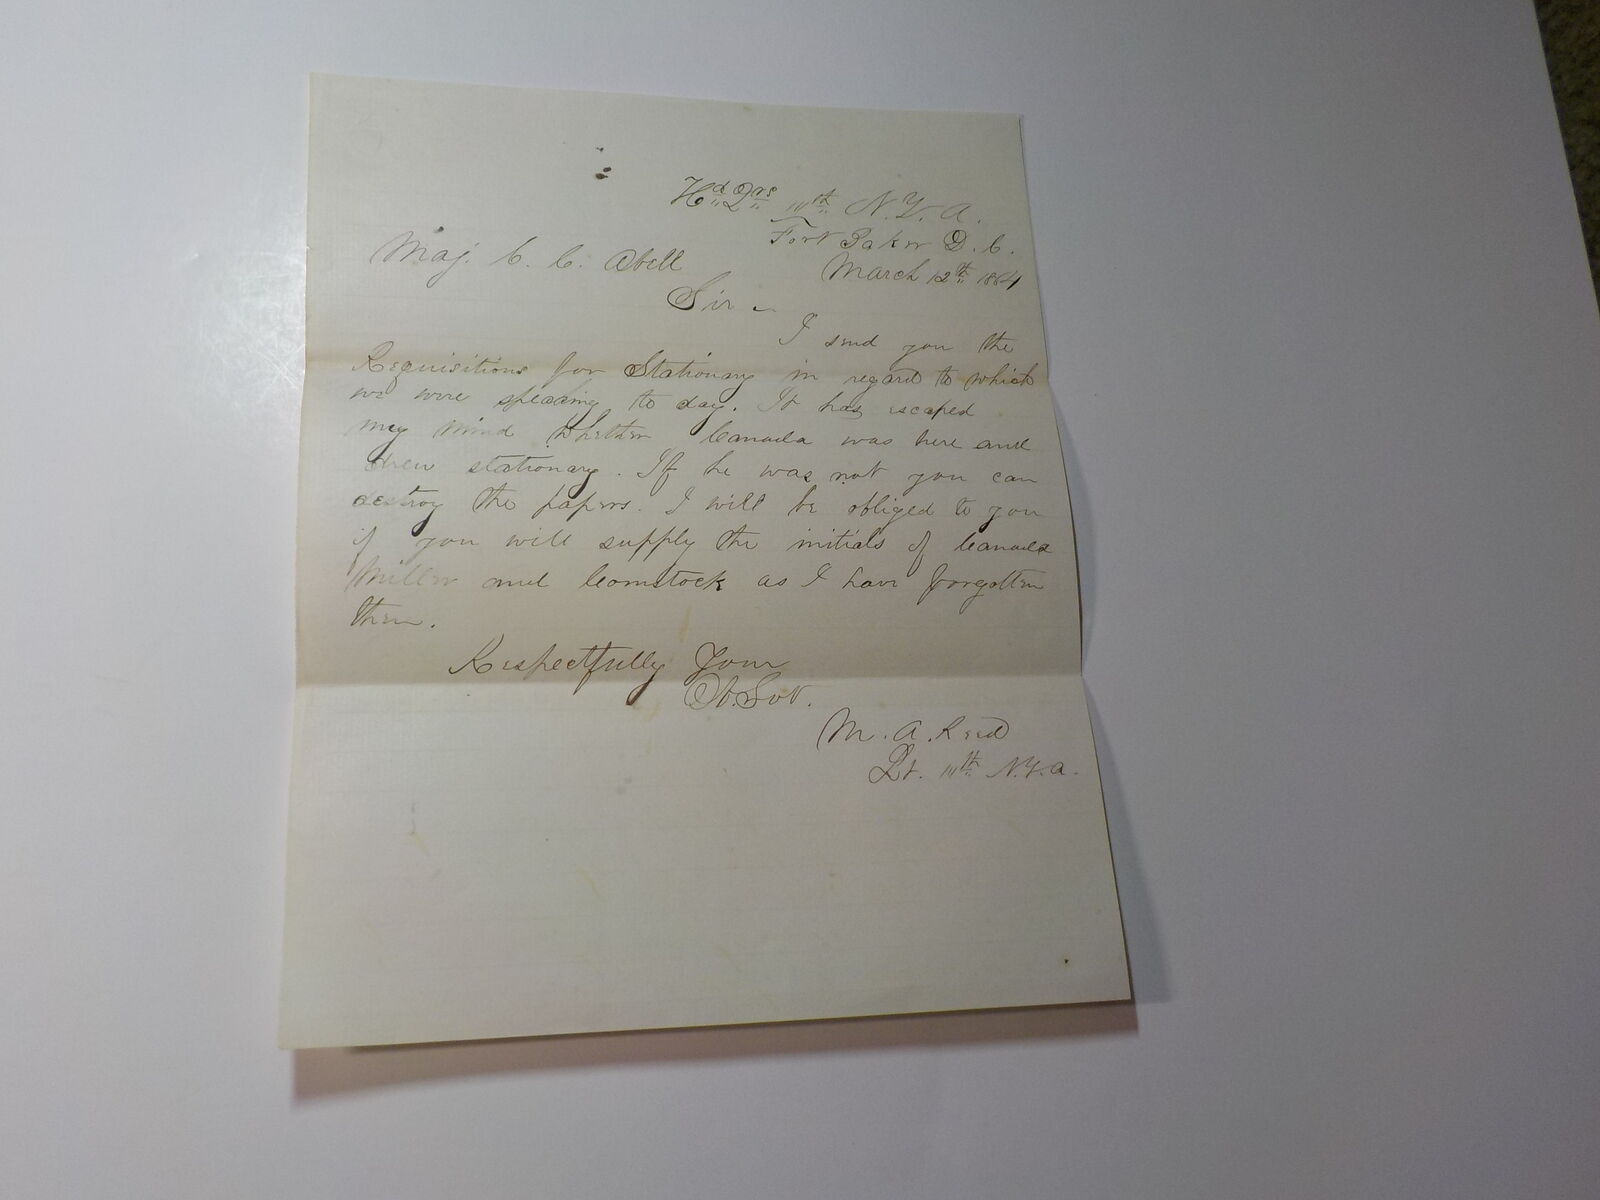 Hd Qrs 11th N.Y.A.
Fort Baker D.C.
March 12th 1864
Maj. C. C. Abell
Sir
I send you the
Requisitions for Stationary in regard to which
we were speaking to day. It has escaped
my mind whether Canada was here and
drew stationary. If he was not you can
destroy the papers. I will be obliged to you
if you will supply the initials of Canada
Miller and Comstock as I have forgotten
them.
Respectfully Your
Ob. Svt.
M. A. Reed
Lt. 11th N.Y.A.